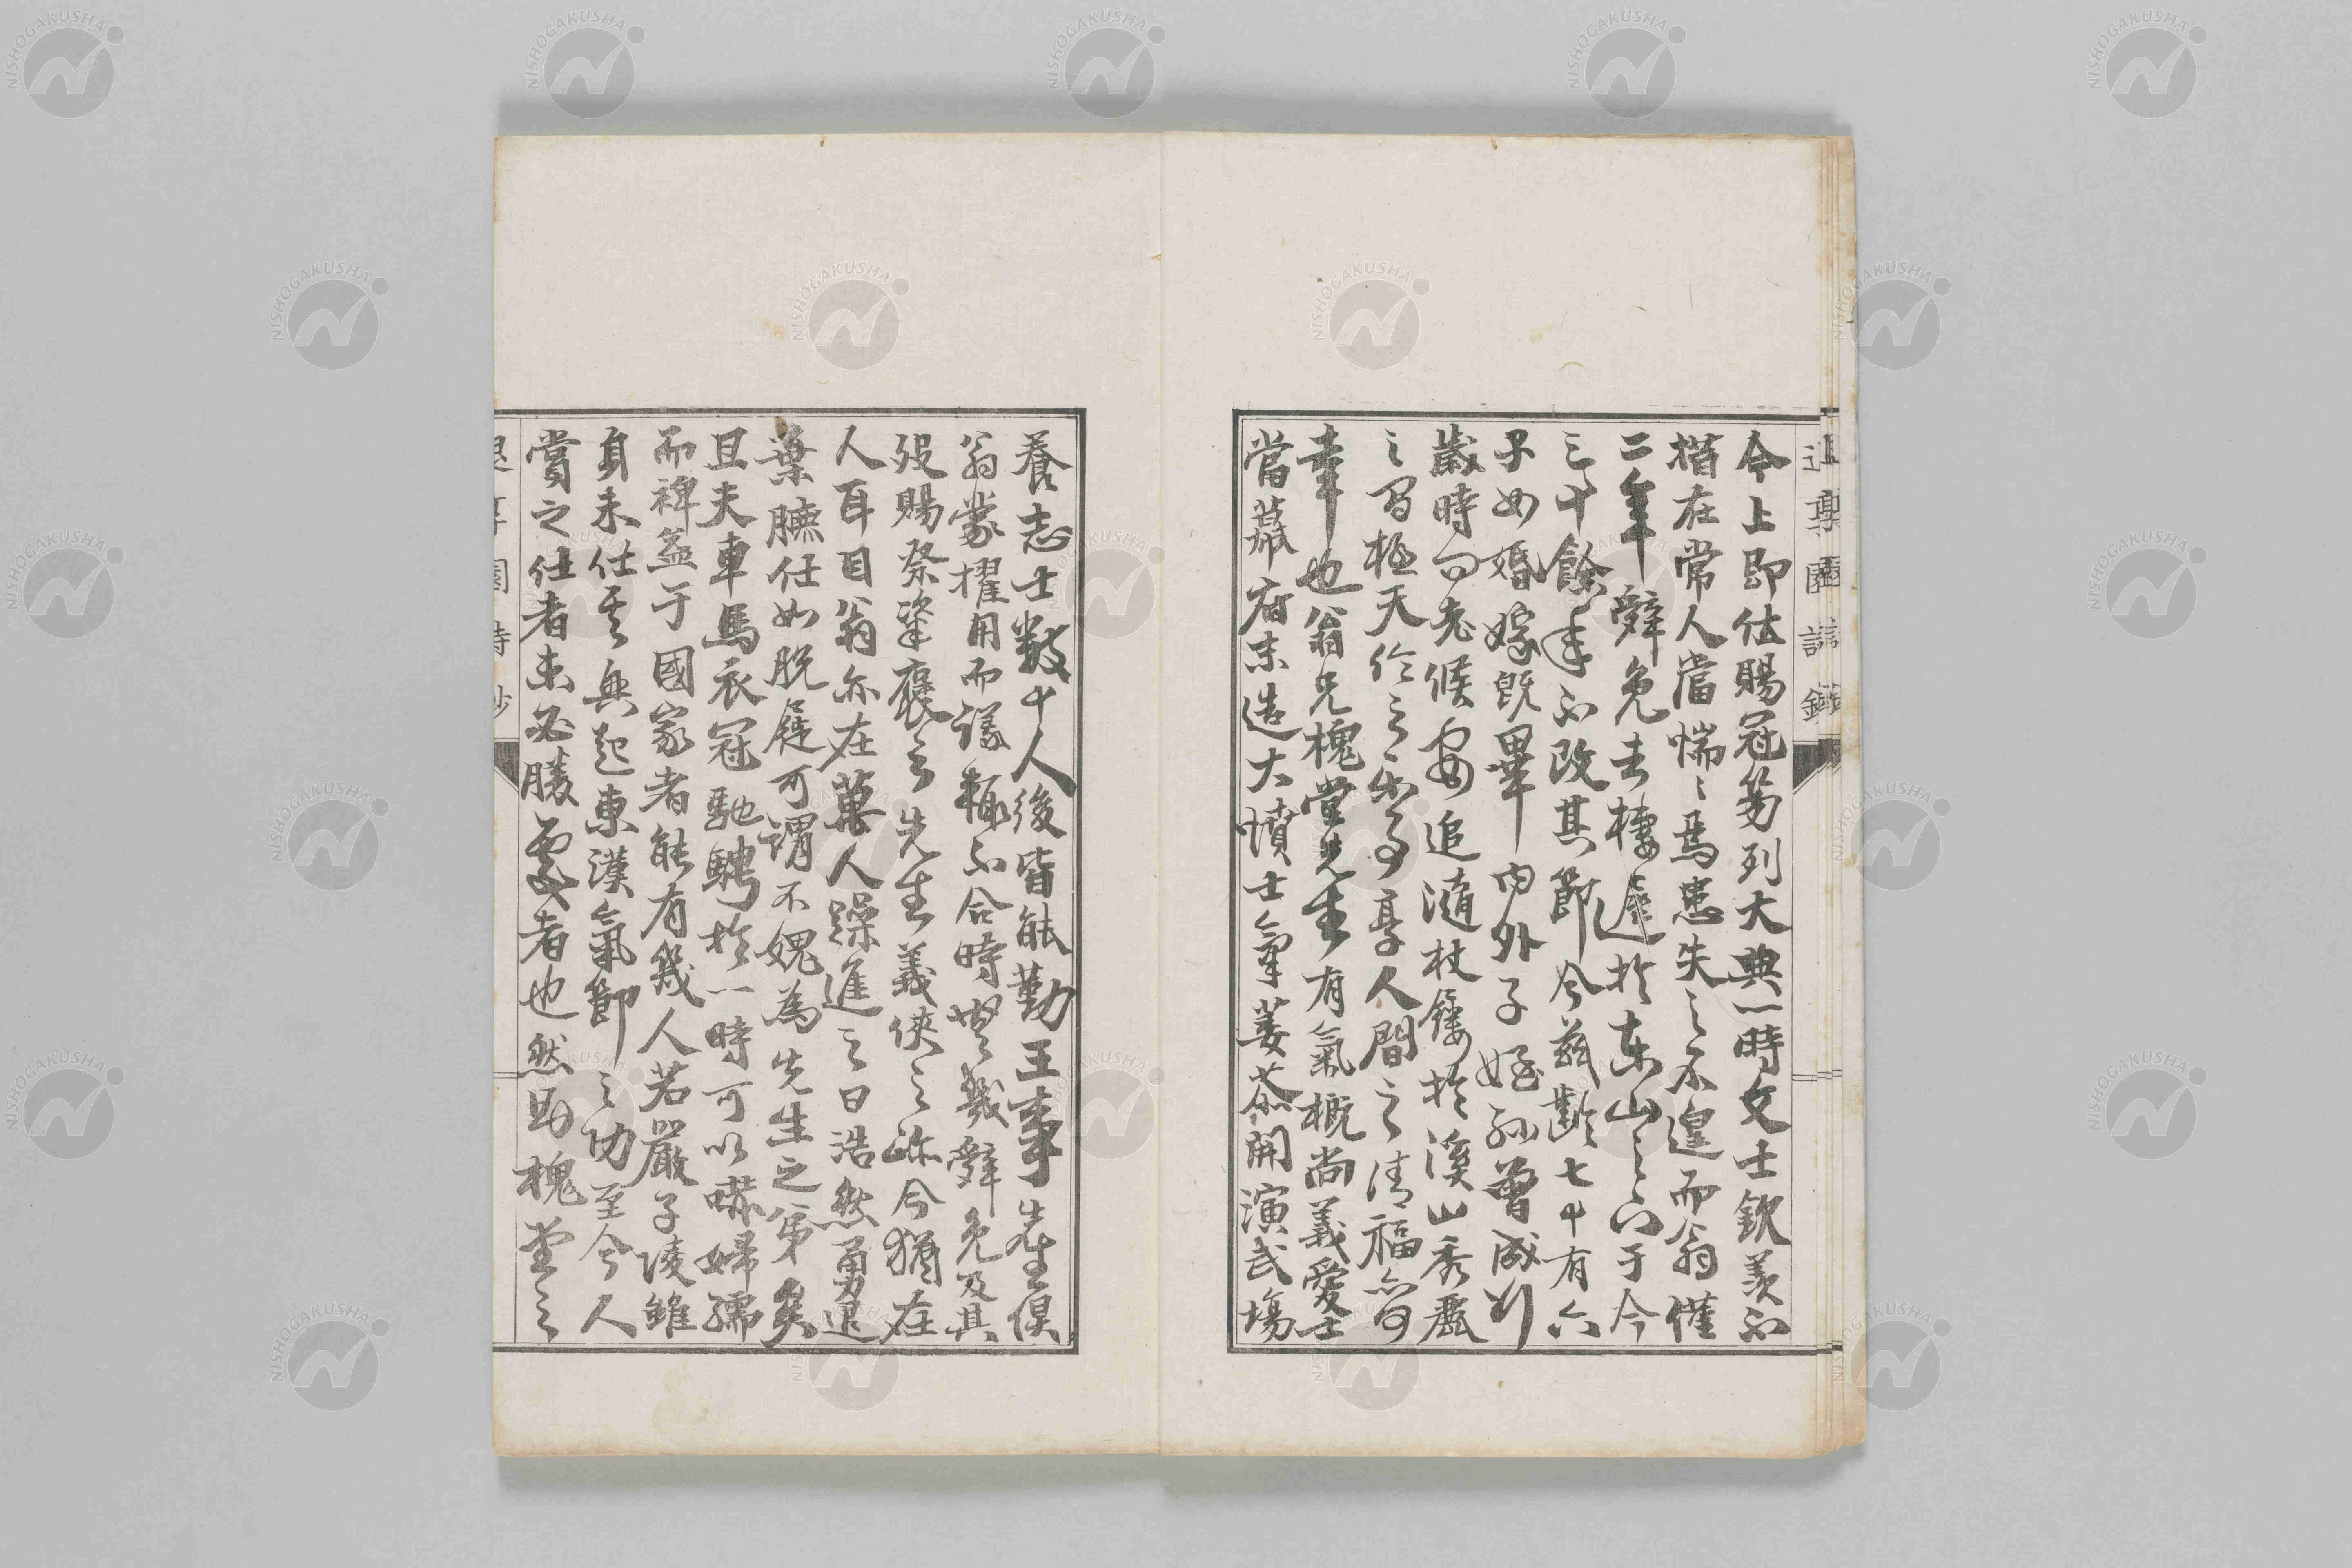 今上即位賜冠笏列大典一時文士欽羨不
措在常人當惴〻焉患失之不遑而翁僅
二年辭免去棲遲於東山之下于今
三十餘年不改其節今茲齡七十有六
子女婚嫁既畢內外子姪孫曾成行
歲時問老候安追隨杖屨於溪山秀麗
之間極天倫之樂事享人間之清福亦可
幸也翁兄槐堂先生有氣概尚義愛士
當幕府末造大憤士氣萎苶開演武場
養志士數十人後皆能勤王事先生俱
翁蒙擢用而議輒不合時譽幾辭免及其
歿賜祭粢褒之先生義俠之跡今猶在
人耳目翁亦在萬人躁進之日浩然勇退
棄膴仕如脫屣可謂不媿為先生之弟矣
且夫車馬衣冠馳騁於一時可以嚇婦孺
而裨益于國家者能有幾人若嚴子陵雖
身未仕其興起東漢氣節之功至今人
賞之仕者未必勝處者也然則槐堂之
退享園詩鈔
NISHOGAKUSHA